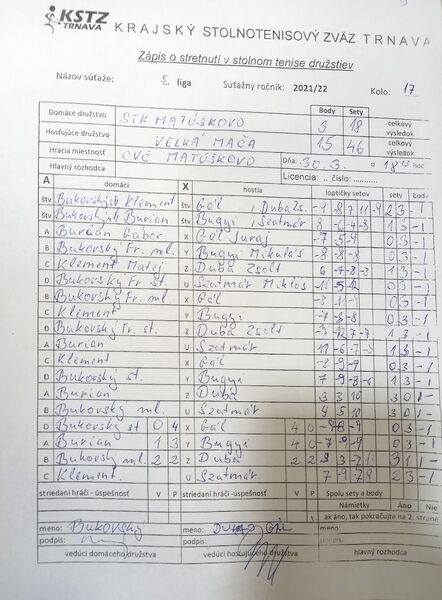 KSTZ TRNAVA KRAJSKÝ STOLNOTENISOVÝ ZVÄZ TRNAVA
Zápis o stretnutí v stolnom tenise družstiev
Názov súťaže: 5. liga Súťažný ročník: 2021/22 Kolo: 17
Body Sety
Domáce družstvo STK MATÚŠKOVO 3 18 celkový výsledok
Hosťujúce družstvo VEĽKÁ MAČA 15 46 celkový výsledok
Hracia miestnosť CVČ MATÚŠKOVO Dňa: 30.3. o 18 hod
Hlavný rozhodca Licencia .. číslo:
A domáci X hostia loptičky setov sety body
Štv Bukovský Klement Štv Gál Duba Zs. 2 3 -1
Štv Bukovský Burian Štv Bugyi Szatmár 1 3 -1
A Burian Gabor X Gál Juraj -7 -5 -9 0 3 -1
B Bukovský Fr. ml. Y Bugyi Mikuláš -8 -8 -8 0 3 -1
C Klement Matej Z Duba Zsolt 6 -7 -8 -3 1 3 -1
D Bukovský Fr. St. U Szatmár Mikloš 0 3 -1
B Bukovský Fr. ml. X Gál 0 3 -1
C Klement Y Bugyi 0 3 -1
D Bukovský Fr. st. Z Duba Zsolt 1 3 -1
A Burian U Szatmár 1 3 -1
C Klement X Gál -8 -9 -9 0 3 -1
D Bukovský st. Y Bugyi 7 -9 -8 -6 1 3 -1
A Burian Z Duba 3 3 10 3 0 1
B Bukovský ml. U Szatmár 9 5 10 3 0 1
D Bukovský st 0 4 X Gál 4 0 0 3 -1
A Burian 1 3 Y Bugyi 4 0 -7 -9 -9 0 3 -1
B Bukovský ml. 2 2 Z Duba 2 2 3 1 1
C Klement. U Szatmár 2 3 -1
striedaní hráči - úspešnosť V P striedaní hráči - úspešnosť V P Spolu sety a body
Námietky Áno Nie
ak áno, tak pokračujte na 2. strane
meno: Bukovský meno: meno:
podpis: podpis: podpis:
vedúci domáceho družstva vedúci hosťujúceho družstva hlavný rozhodca